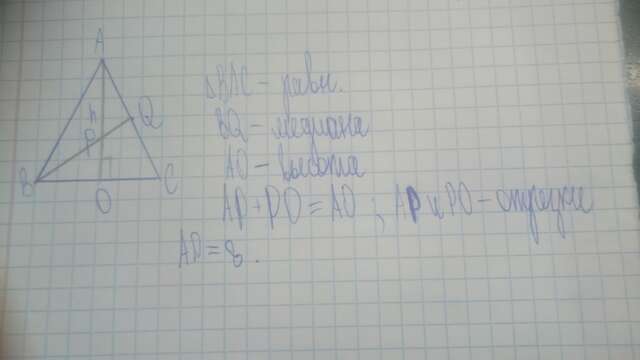 A
h
Q
P
B
O
C
△ВАС – равн.
BQ – медиана
АО – высота
AP + PO = AO ; AP и PO – отрезки
AP = 8.